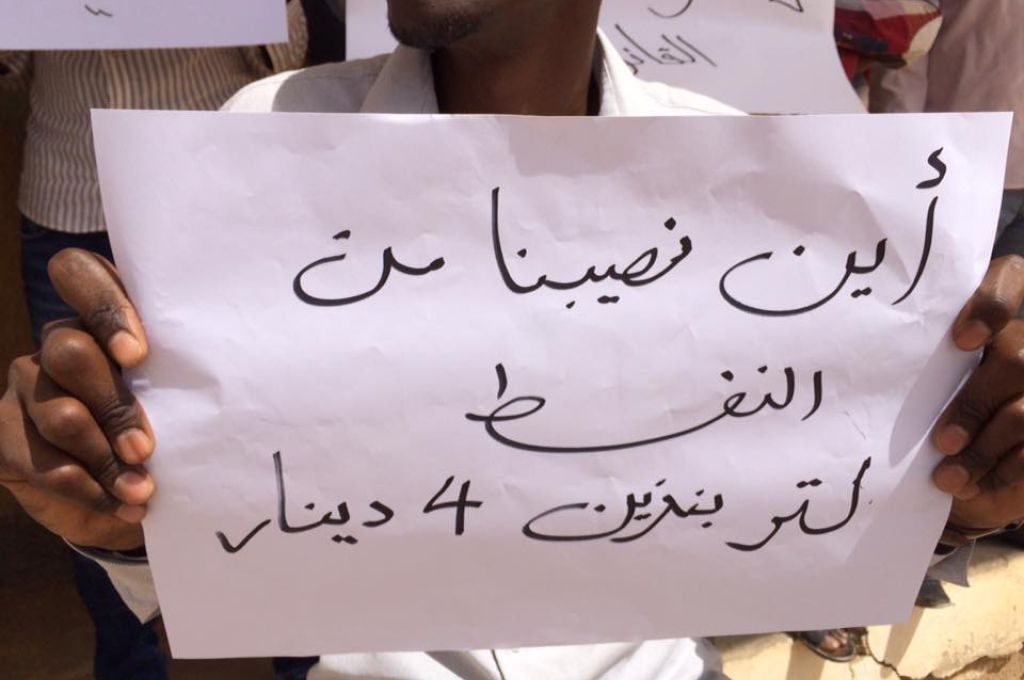 أين نصيبنا من
النفط
لتر بنزين 4 دينار